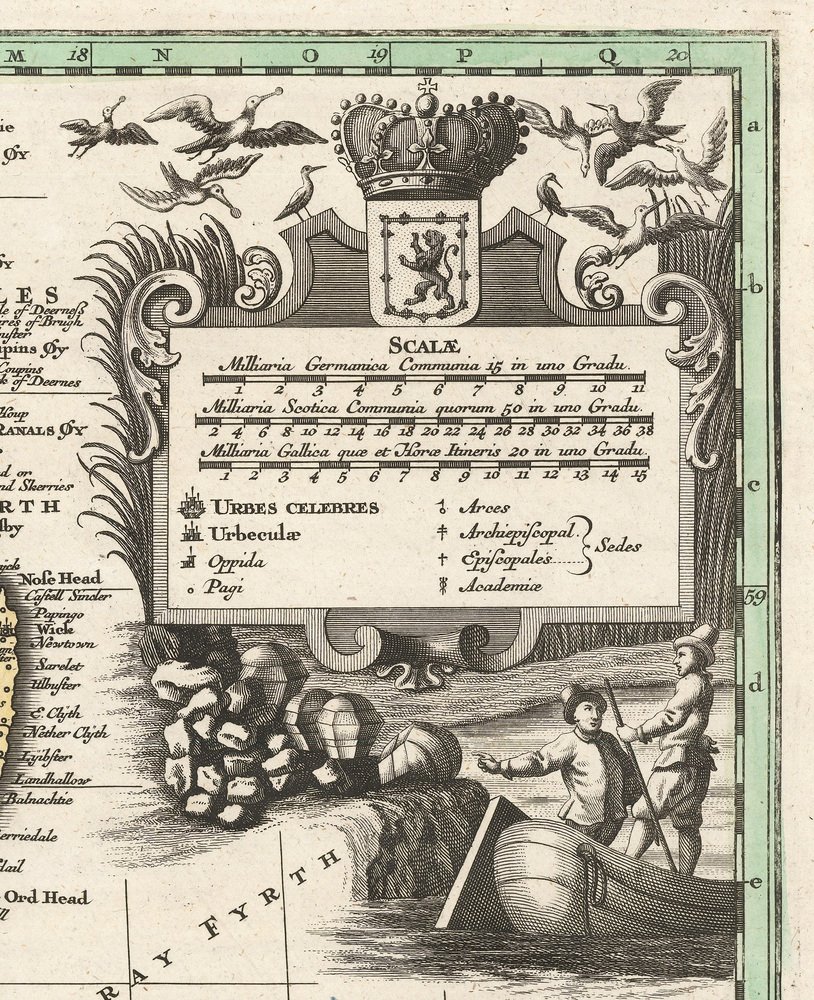 M 18 N O 19 P Q 20
a
ØY
b
LES
le of Deerneſs
res of Brugh
upins Øy
Coupins
k of Deernes
Houp
RANALS ØY
d or
nd Skerries
RTH
ſby
c
SCALÆ
Milliaria Germanica Communia 15 in uno Gradu.
1 2 3 4 5 6 7 8 9 10 11
Milliaria Scotica Communia quorum 50 in uno Gradu.
2 4 6 8 10 12 14 16 18 20 22 24 26 28 30 32 34 36 38
Milliaria Gallica quæ et Horæ Itineris 20 in uno Gradu.
1 2 3 4 5 6 7 8 9 10 11 12 13 14 15
URBES CELEBRES
Urbeculæ
Oppida
Pagi
Arces
Archiepiſcopal.
Epiſcopales
Sedes
Academiæ
59
Noſe Head
Caſtell Sincler
Papingo
Wick
Newtown
Sarelet
Ulbuſter
E. Clÿth
Nether Clÿth
Lÿibſter
Landhallow
Balnachtie
erriedale
Ord Head
d
e
RAY FYRTH